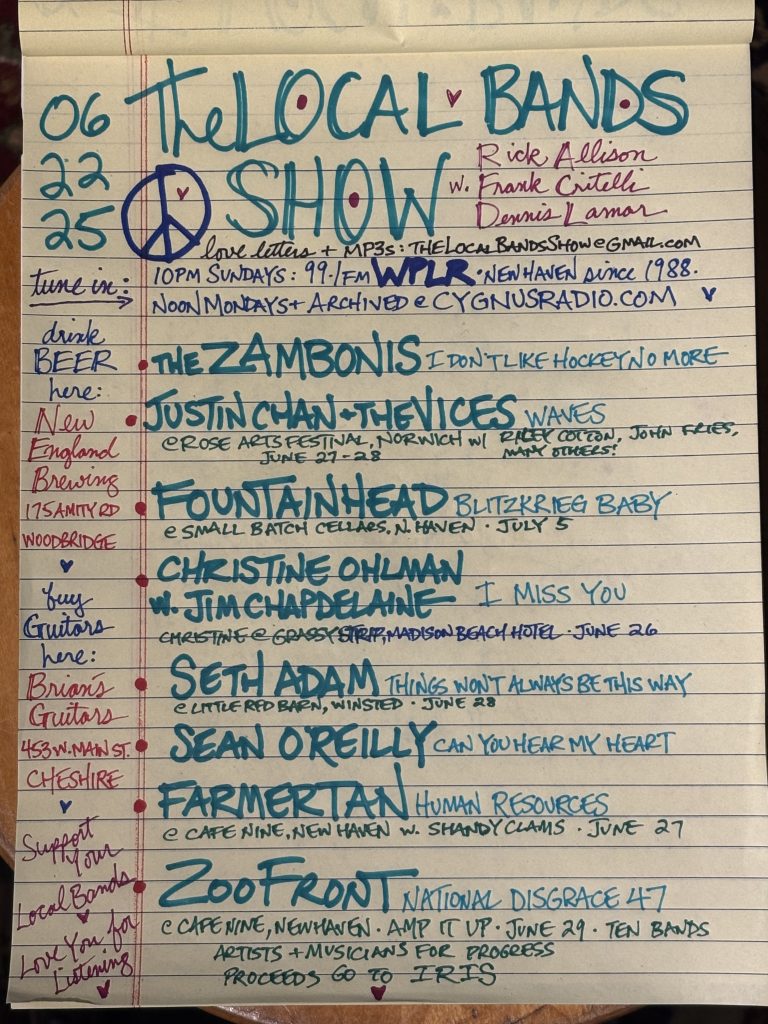 06
22
25
The LOCAL BANDS
SHOW
w. Rick Allison
Frank Critelli
Dennis Lamar
love letters + MP3s: THELOCALBANDSSHOW@GMAIL.COM
tune in:
10PM SUNDAYS: 99.1FM WPLR · NEW HAVEN since 1988.
NOON MONDAYS + ARCHIVED @ CYGNUSRADIO.COM
drink
BEER
here:
New
England
Brewing
175 AMITY RD
WOODBRIDGE
buy
Guitars
here:
Brian's
Guitars
453 W. MAIN ST.
CHESHIRE
Support
Your
Local Bands
Love You for
Listening
• THE ZAMBONIS I DON'T LIKE HOCKEY NO MORE
• JUSTIN CHAN + THE VICES WAVES
@ ROSE ARTS FESTIVAL, NORWICH W/ RILEY COTTON, JOHN FRIES,
JUNE 27-28 MANY OTHERS!
• FOUNTAINHEAD BLITZKRIEG BABY
@ SMALL BATCH CELLARS, N. HAVEN · JULY 5
• CHRISTINE OHLMAN
W. JIM CHAPDELAINE I MISS YOU
CHRISTINE @ GRASSY STRIP, MADISON BEACH HOTEL · JUNE 26
• SETH ADAM THINGS WON'T ALWAYS BE THIS WAY
@ LITTLE RED BARN, WINSTED · JUNE 28
• SEAN O'REILLY CAN YOU HEAR MY HEART
• FARMERTAN HUMAN RESOURCES
@ CAFE NINE, NEW HAVEN W. SHANDY CLAMS · JUNE 27
• ZOO FRONT NATIONAL DISGRACE 47
@ CAFE NINE, NEW HAVEN · AMP IT UP · JUNE 29 · TEN BANDS
ARTISTS + MUSICIANS FOR PROGRESS
PROCEEDS GO TO IRIS